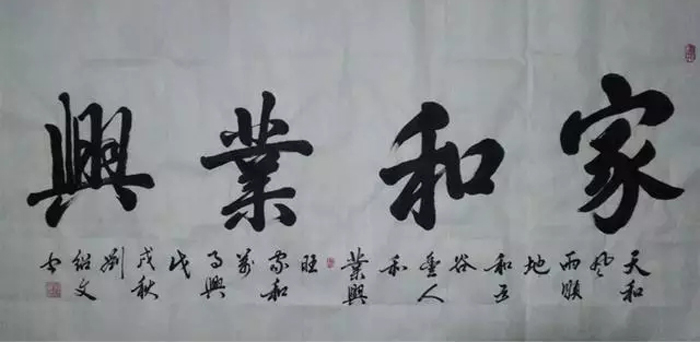 家和業興
天和
风
雨順
地
和五
谷
人
和
業興
旺
家和
萬
事興
戊
戌秋
劉
绍文
书